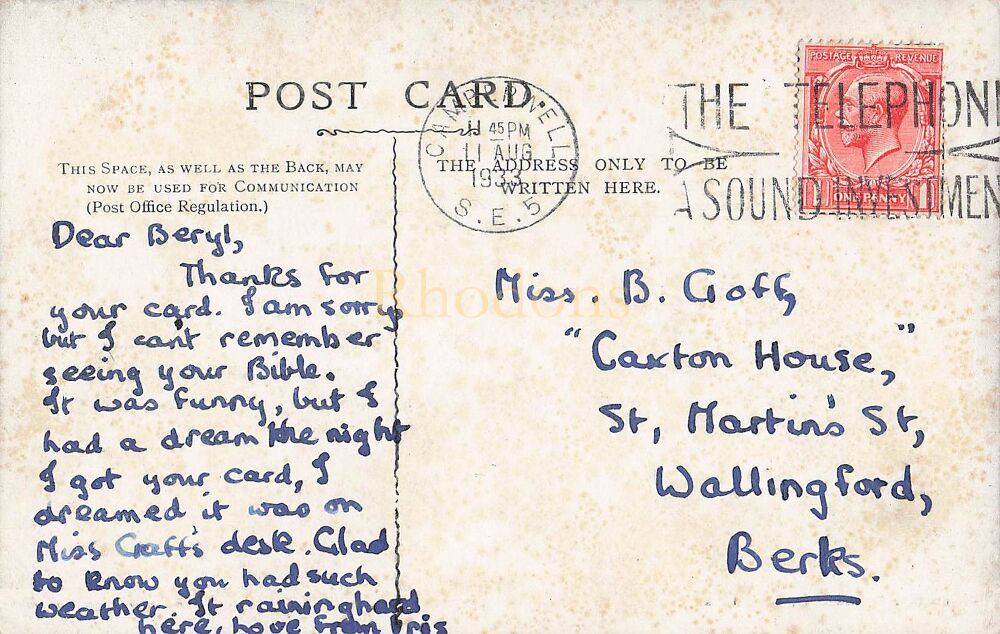 POST CARD.
THIS SPACE, AS WELL AS THE BACK, MAY
NOW BE USED FOR COMMUNICATION
(Post Office Regulation.)
THE ADDRESS ONLY TO BE
WRITTEN HERE.
CAMBERWELL
11 45 PM
11 AUG
193
S.E.5
THE TELEPHONE
A SOUND INVESTMEN
POSTAGE REVENUE
ONE PENNY
Dear Beryl,
Thanks for
your card. I am sorry,
but I can't remember
seeing your Bible.
It was funny, but I
had a dream the night
I got your card, I
dreamed it was on
Miss desk. Glad
to know you had such
weather. It raining hard
here, love from Iris
Miss. B. Goff,
"Caxton House,"
St, Martin's St,
Wallingford,
Berks.
Rhodons